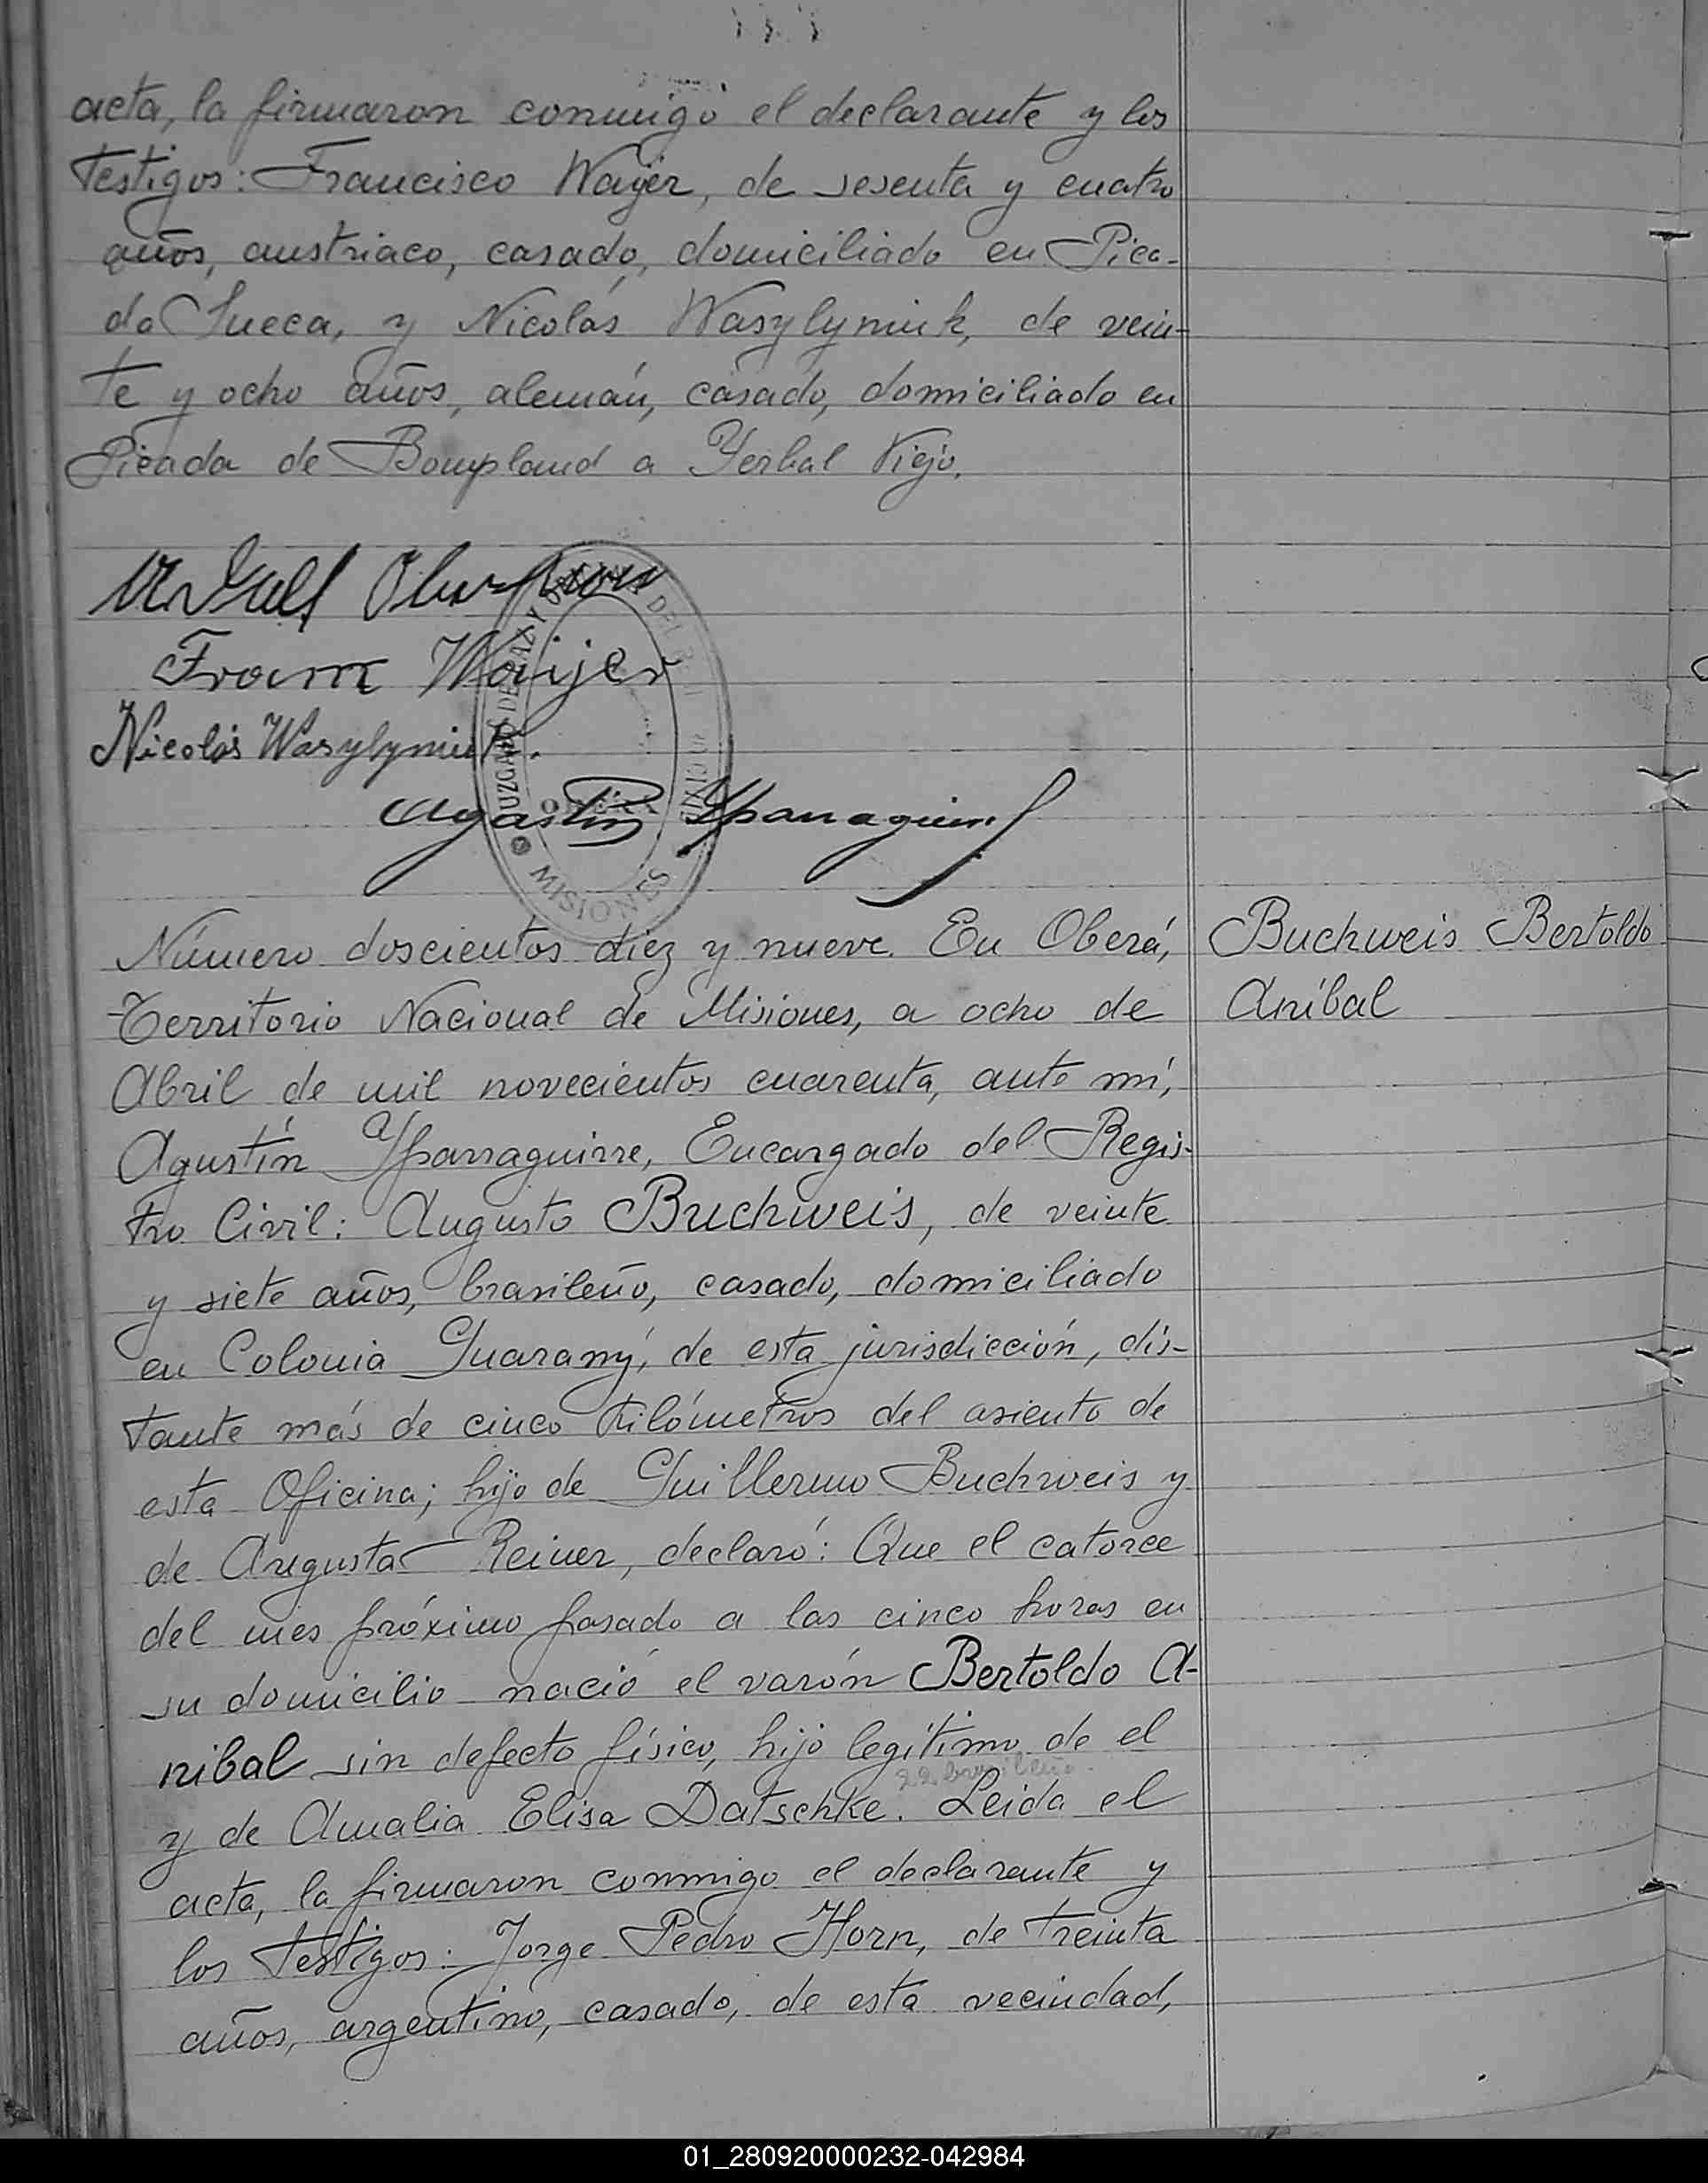 acta, la firmaron conmigo el declarante y los
testigos: Francisco Wayer, de sesenta y cuatro
años, austriaco, casado, domiciliado en Pica-
da Sueca, y Nicolás Wasylyniuk, de vein-
te y ocho años, alemán, casado, domiciliado en
Picada de Bompland a Yerbal Viejo.
Franz Waijer
Nicolás Wasylyniuk.
Agustín Yparraguirre
JUZGADO DE PAZ Y
OBERÁ
MISIONES
Número doscientos diez y nueve. En Oberá,
Buchweis Bertoldo
Territorio Nacional de Misiones, a ocho de
Aníbal
Abril de mil novecientos cuarenta, ante mí,
Agustín Yparraguirre, Encargado del Regis-
tro Civil: Augusto Buchweis, de veinte
y siete años, brasileño, casado, domiciliado
en Colonia Guarany, de esta jurisdicción, dis-
tante más de cinco kilómetros del asiento de
esta Oficina; hijo de Guillermo Buchweis y
de Augusta Reiner, declaró: Que el catorce
del mes próximo pasado a las cinco horas en
su domicilio nació el varón Bertoldo A-
nibal sin defecto físico, hijo legítimo de el
y de Amalia Elisa Datschke. Leida el
acta, la firmaron conmigo el declarante y
los testigos: Jorge Pedro Horn, de treinta
años, argentino, casado, de esta vecindad,
01_280920000232-042984